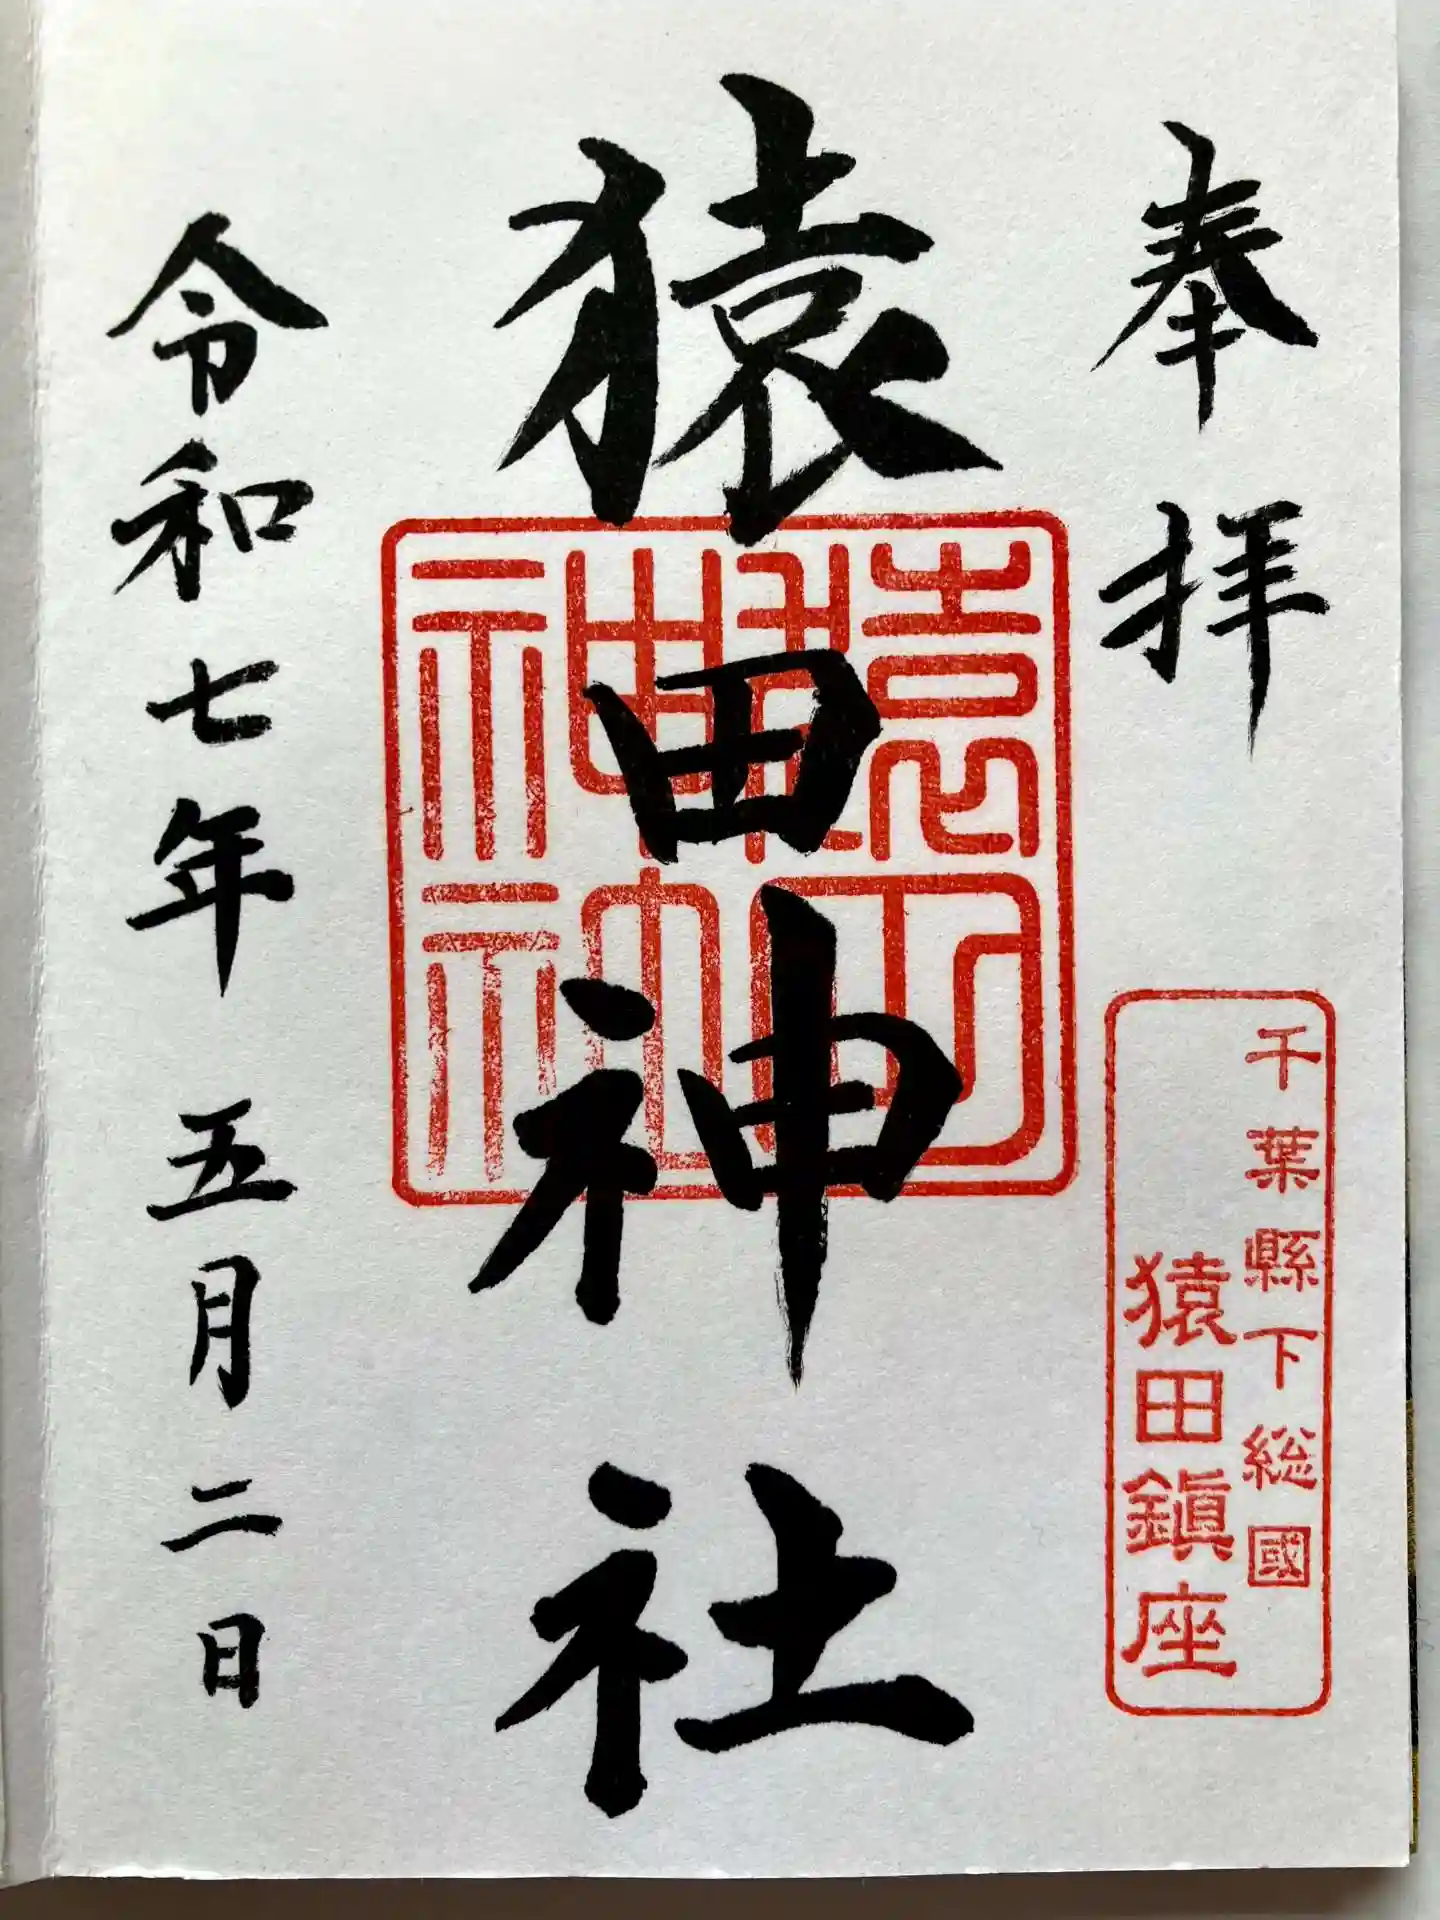 奉拝
千葉縣下総國
猿田鎮座
猿田神社
猿田神社
令和七年 五月二日